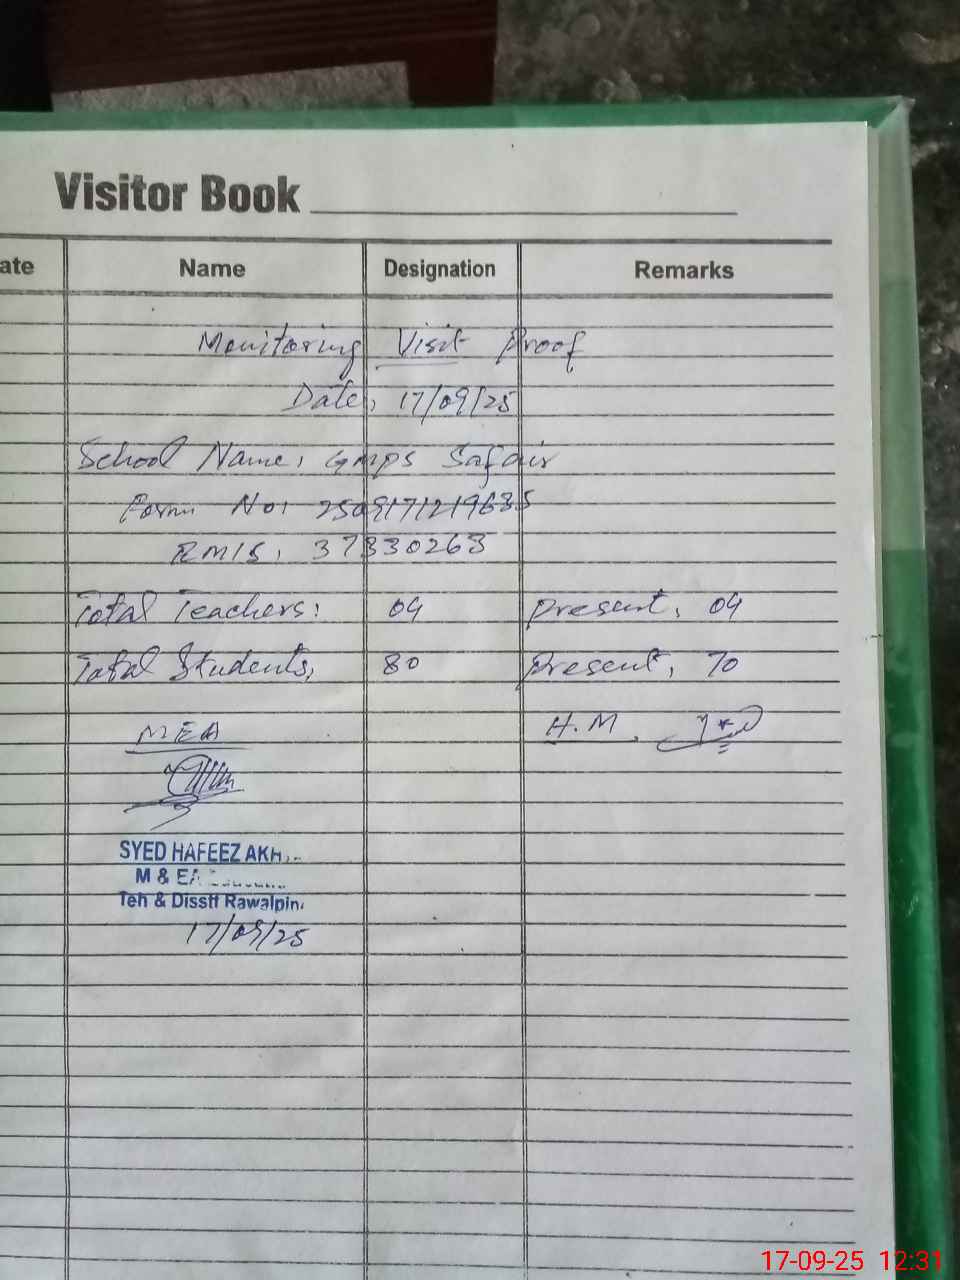 Visitor Book
ate Name Designation Remarks
Monitoring Visit Proof
Date: 17/09/25
School Name: GMPS Safair
Form No: 2509171219635
EMIS: 37330263
Total Teachers: 04 Present: 04
Total Students: 80 Present: 70
MEA H.M
SYED HAFEEZ AKH
M & EA
Teh & Disstt Rawalpin
17/09/25
17-09-25 12:31